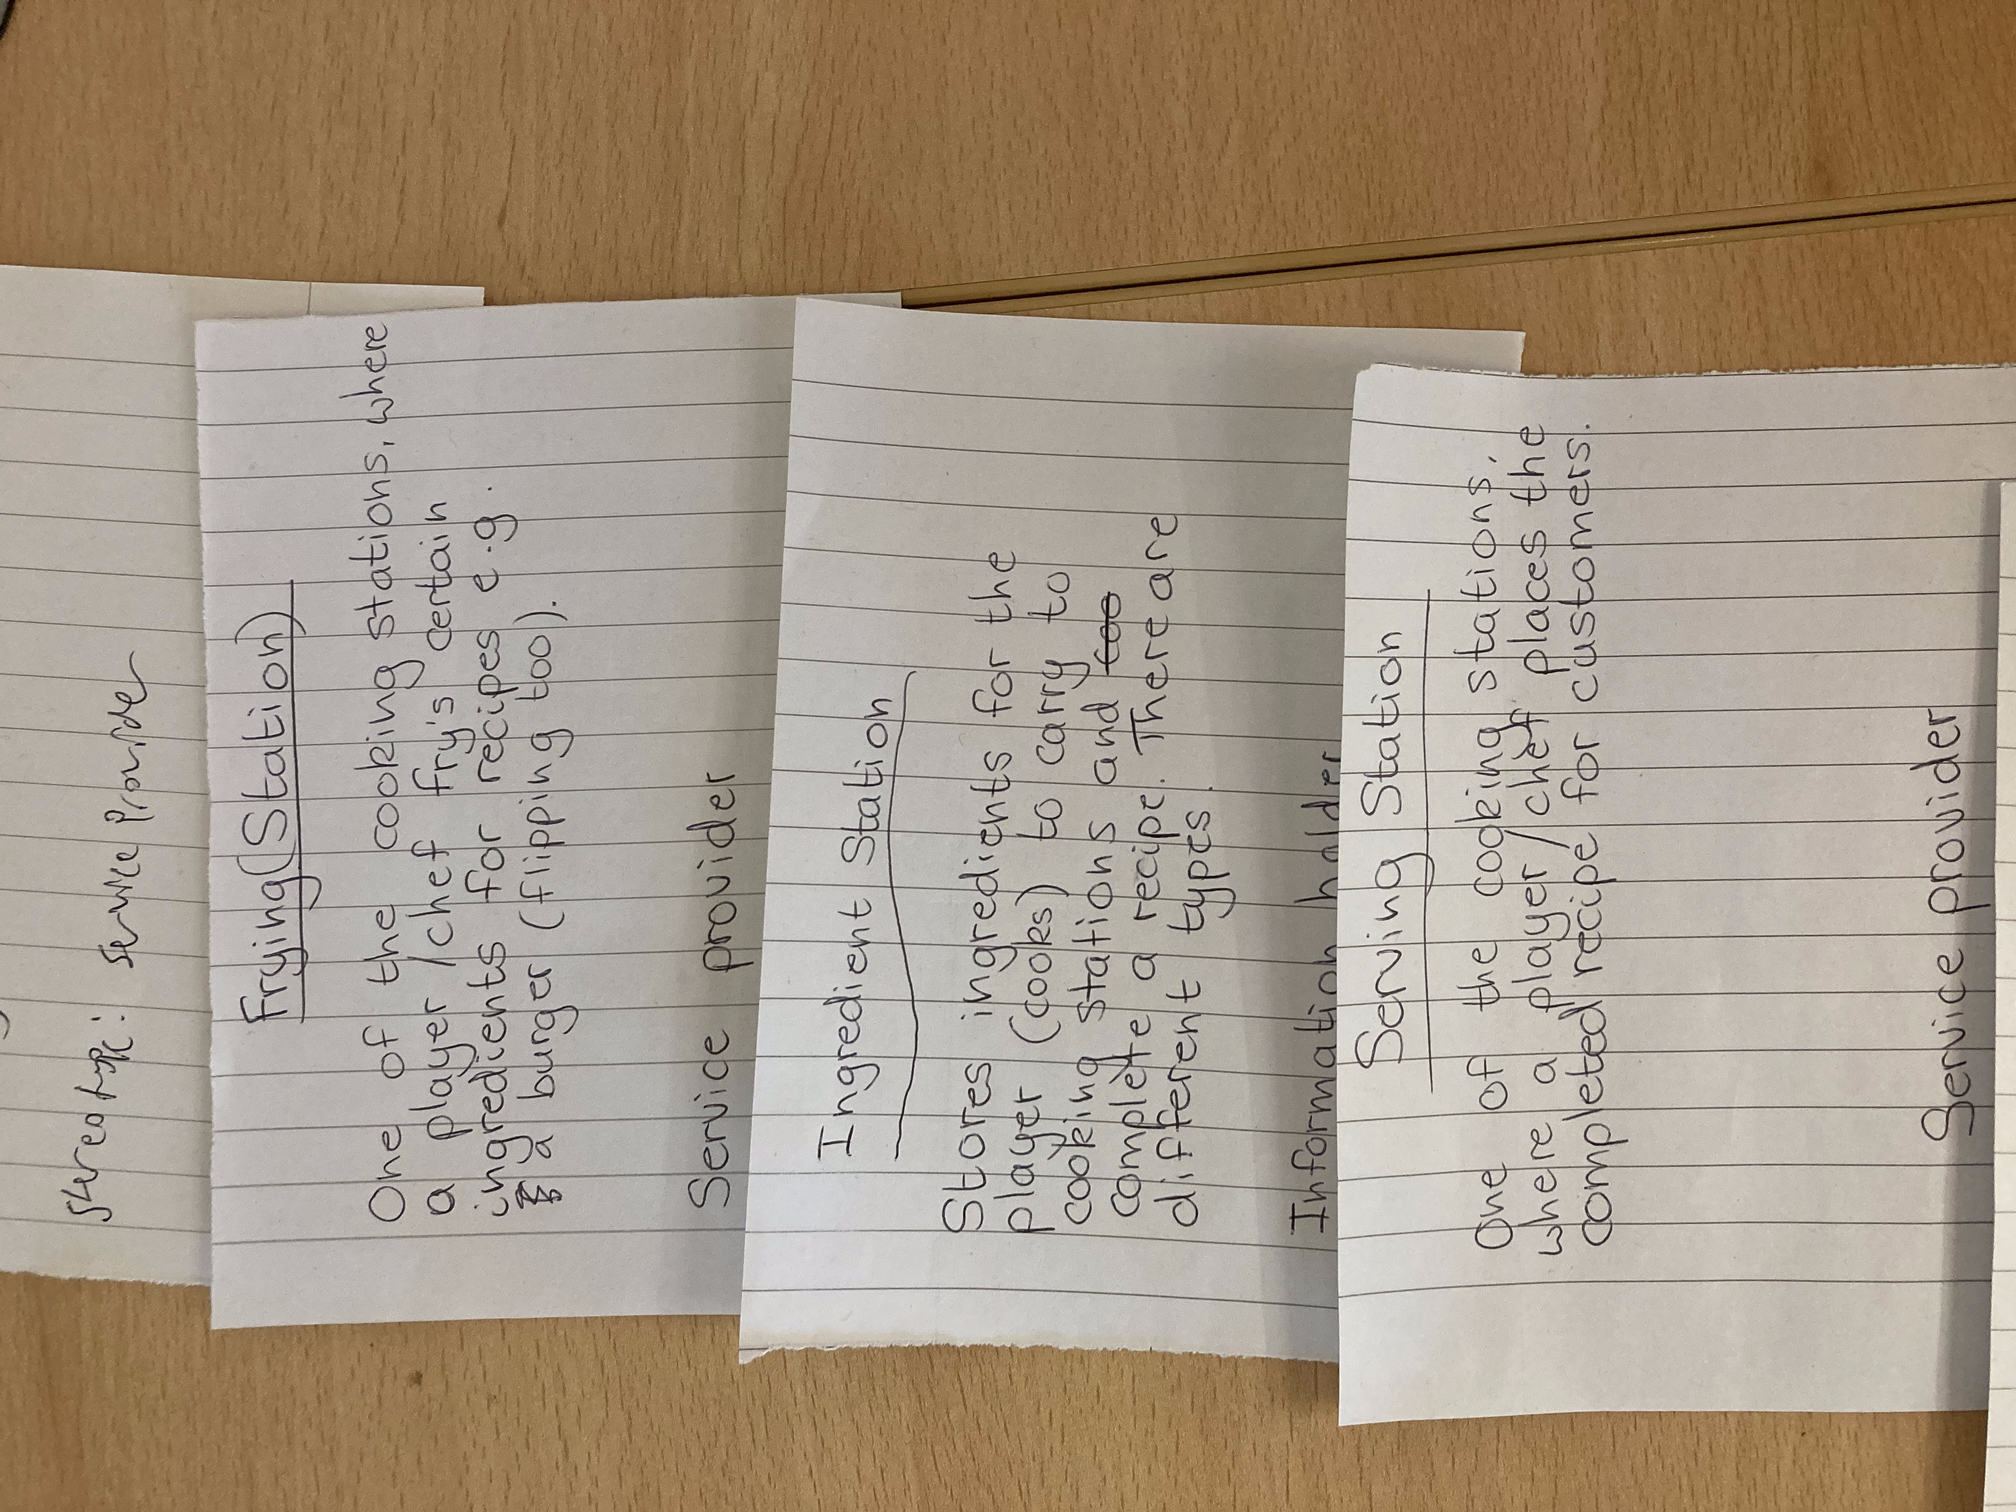 Stereotype: Service Provider
Frying (Station)
One of the cooking stations, where
a player/chef fry's certain
ingredients for recipes e.g.
a burger (flipping too).
Service provider
Ingredient Station
Stores ingredients for the
player (cooks) to carry to
cooking stations and too
complete a recipe. There are
different types.
Information holder
Serving Station
One of the cooking stations,
where a player/chef places the
completed recipe for customers.
Service provider